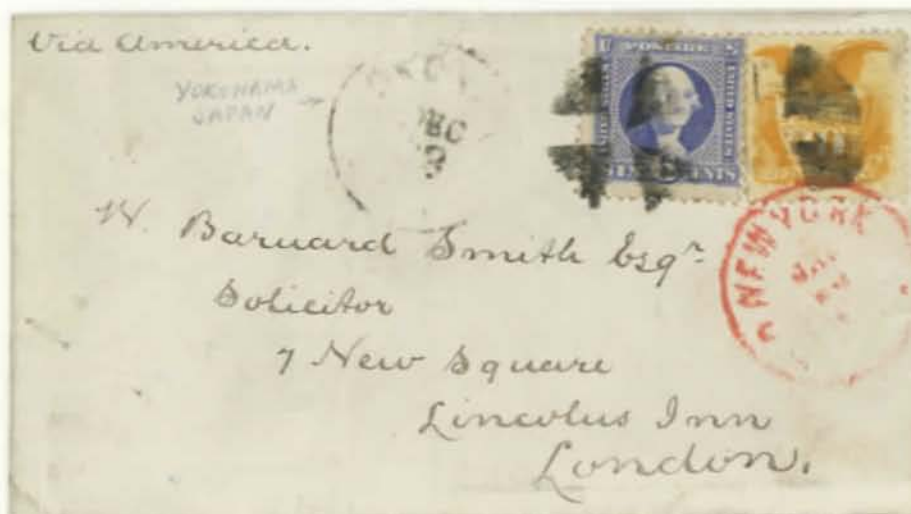 Via America.
YOKOHAMA
JAPAN
DEC
U POSTAGE S
UNITED STATES
CENTS
NEW YORK
W. Barnard Smith Esqr
Solicitor
7 New Square
Lincolns Inn
London.